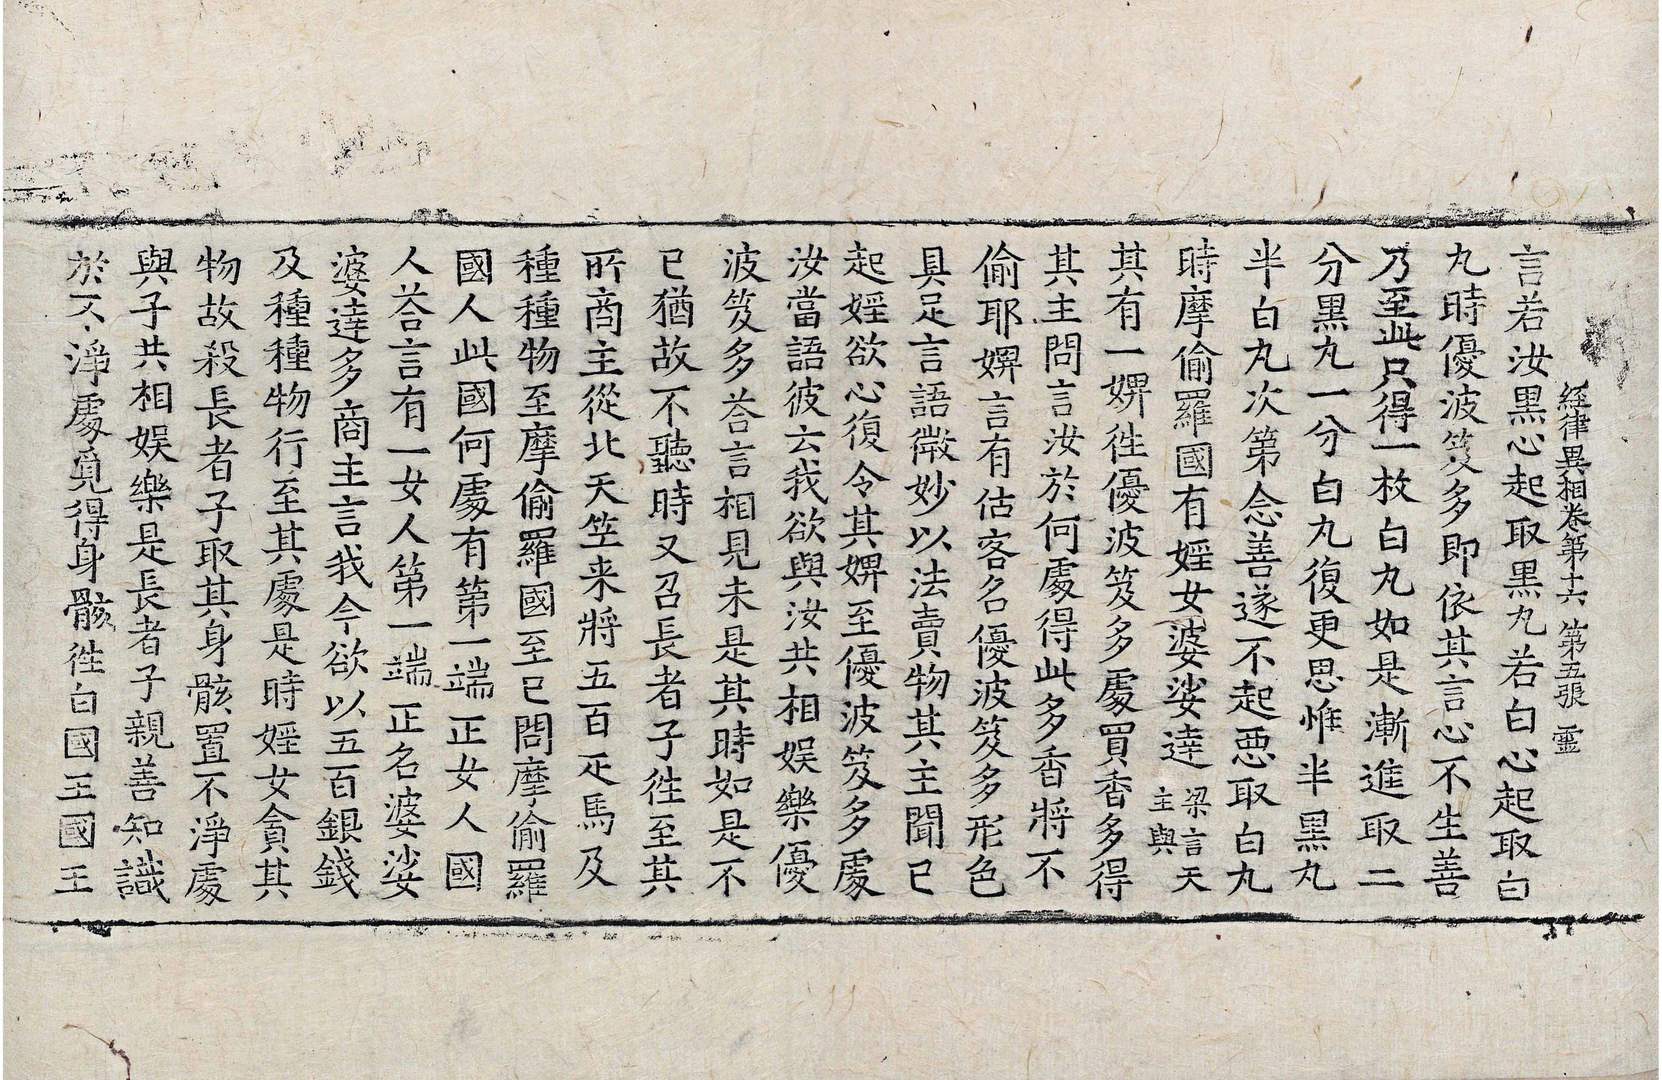 經律異相卷第十六 第五張 靈
言若汝黒心起取黒丸若白心起取白
丸時優波笈多即依其言心不生善
乃至此只得一枚白丸如是漸進取二
分黒丸一分白丸復更思惟半黒丸
半白丸次第念善遂不起惡取白丸
時摩偷羅國有婬女婆娑達 梁言天主與
其有一婢徃優波笈多處買香多得
其主問言汝於何處得此多香將不
偷耶婢言有估客名優波笈多形色
具足言語微妙以法賣物其主聞已
起婬欲心復令其婢至優波笈多處
汝當語彼云我欲與汝共相娱樂優
波笈多荅言相見未是其時如是不
已猶故不聽時又召長者子徃至其
所商主從北天竺来將五百疋馬及
種種物至摩偷羅國至已問摩偷羅
國人此國何處有第一端正女人國
人荅言有一女人第一端正名婆娑
婆達多商主言我今欲以五百銀錢
及種種物行至其處是時婬女貪其
物故殺長者子取其身骸置不淨處
與子共相娱樂是長者子親善知識
於不淨處覓得身骸徃白國王國王